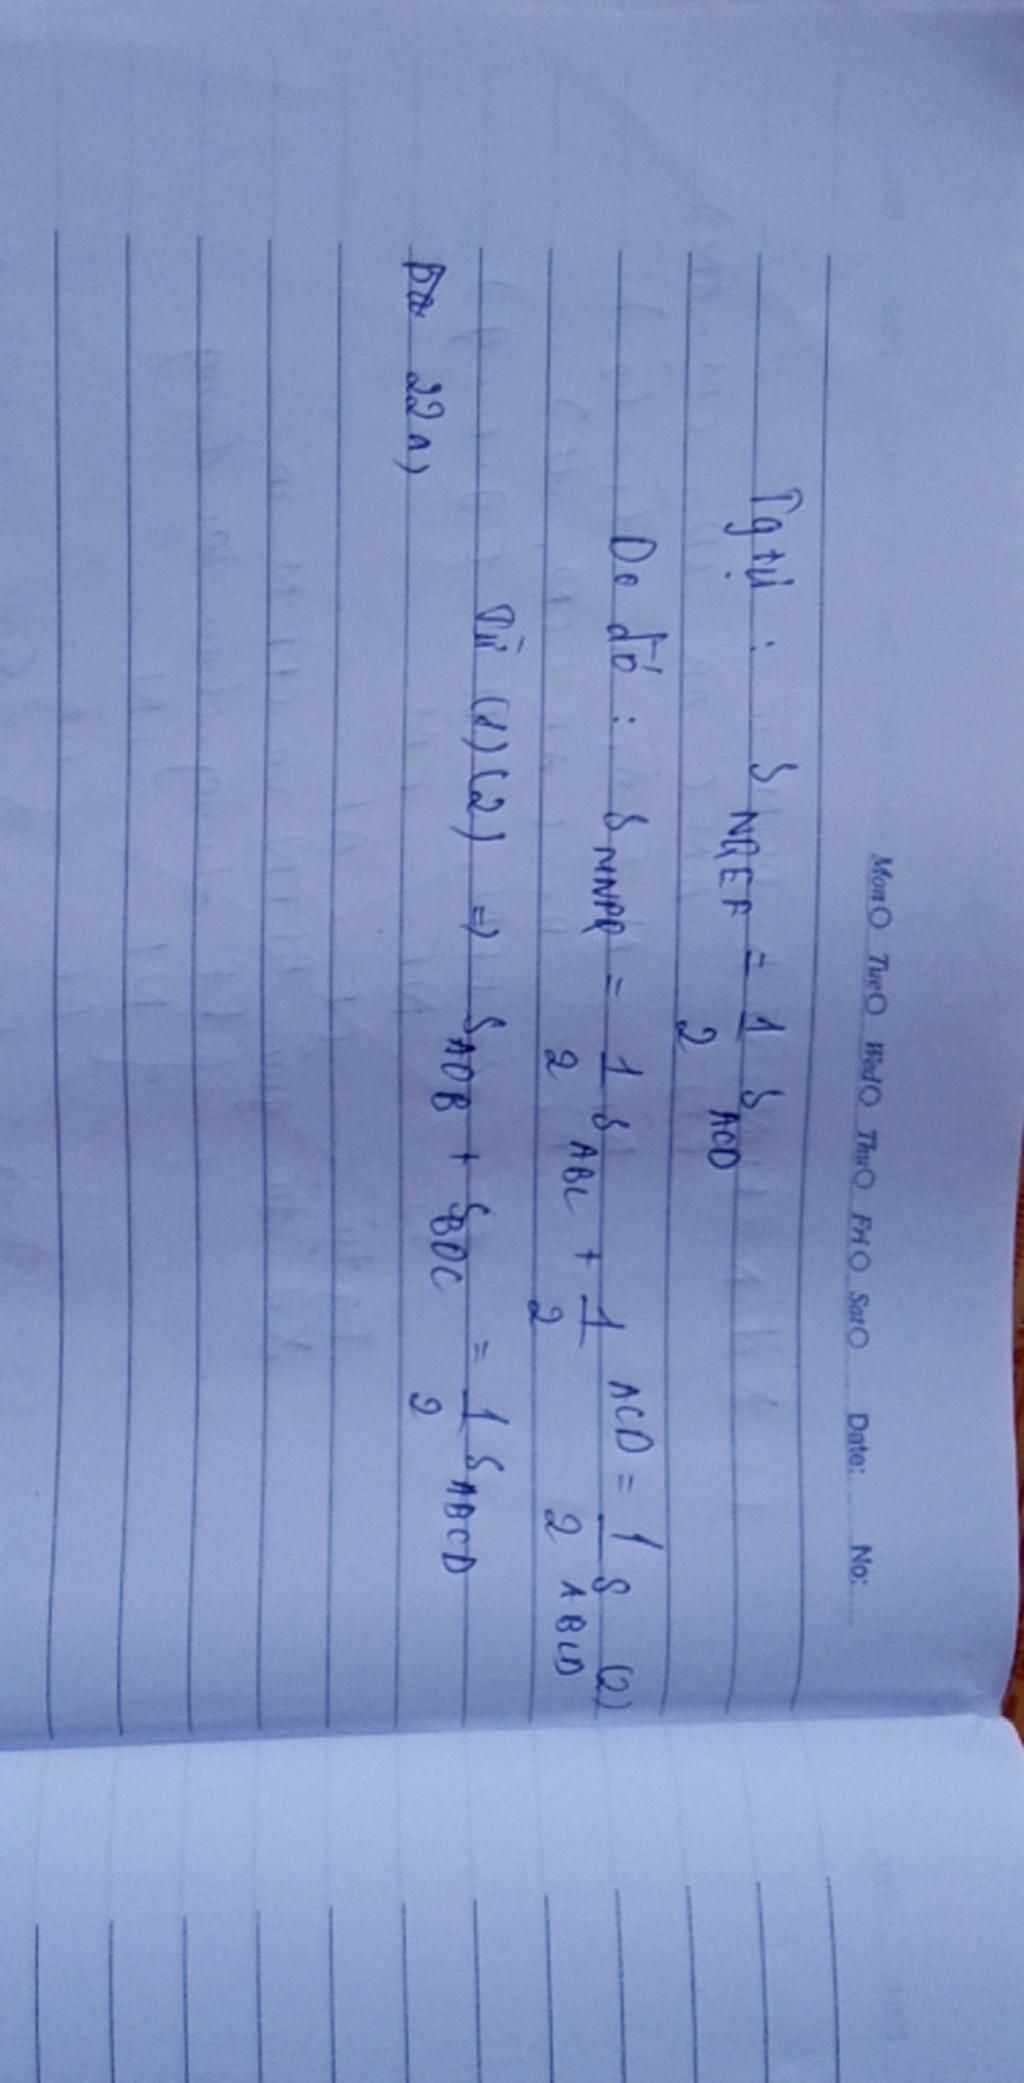 Mon Tue Wed Thu Fri Sat Date: No:
Tg tự : S NQEF = 1/2 S ACD
Do đó : S MNPQ = 1/2 S ABC + 1/2 ACD = 1/2 S ABCD (2)
Từ (1) (2) => S AOB + S BOC = 1/2 S ABCD
22